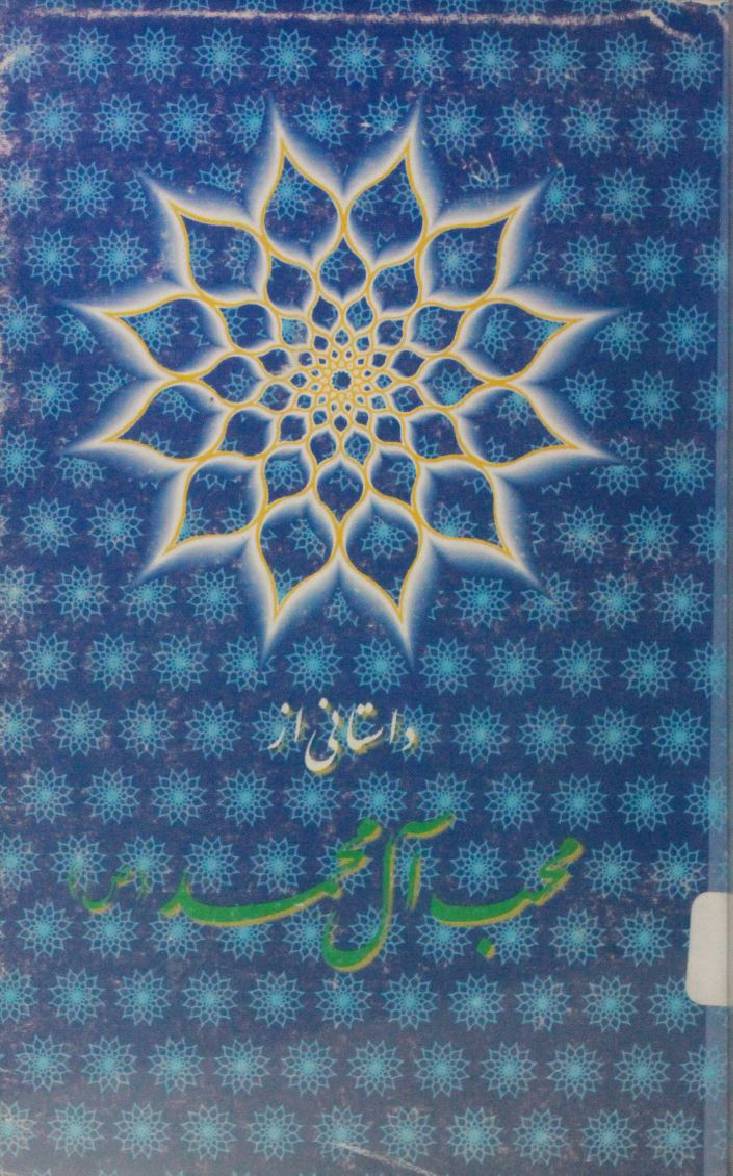 داستانی از
محب آل محمد (ص)